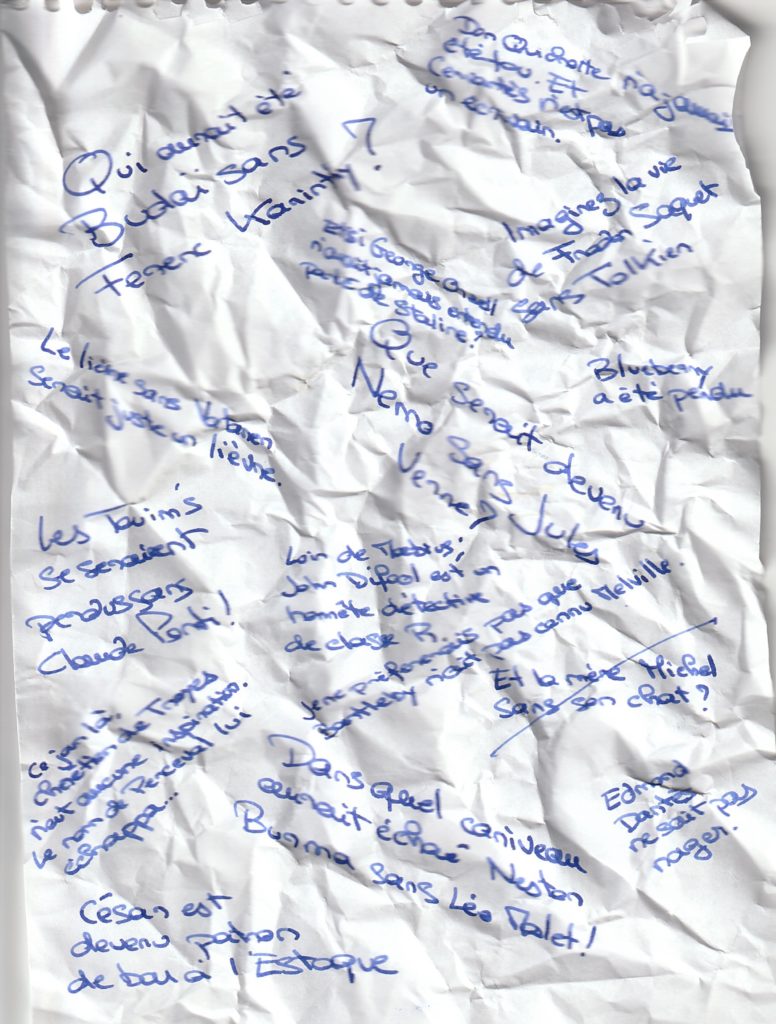 Don Quichotte n'a jamais
été fou. Et
Cervantès n'est pas
un écrivain.
Qui aurait été
Budaï sans
Ferenc Karinthy ?
Imaginez la vie
de Frodon Saquet
sans Tolkien
Et si George Orwell
n'avait jamais entendu
parler de Staline ?
Le lièvre sans Vatanen
Serait juste un
lièvre.
Que serait devenu
Nemo sans Jules
Verne ?
Blueberry
a été perdu
Les Touim's
se seraient
perdus sans
Claude Ponti !
Loin de Moebius,
John Difool est un
honnête détective
de classe R.
Je ne préférerais pas que
Bartleby n'ait pas connu Melville.
Et la mère Michel
Sans son chat ?
Ce jour là,
Chrétien de Troyes
n'eut aucune inspiration.
Le nom de Perceval lui
échappa...
Dans quel caniveau
aurait échoué Nestor
Burma sans Léo Malet !
Edmond
Dantès
ne sait pas
nager.
César est
devenu patron
de bar à l'Estaque